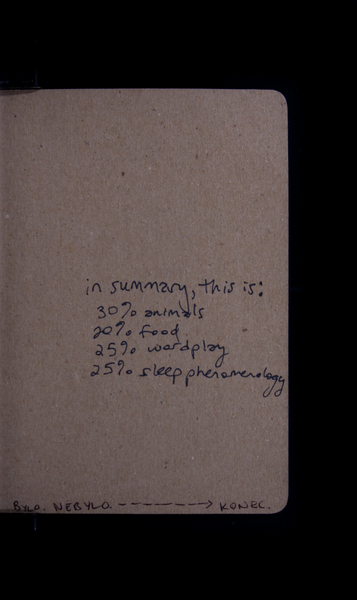 in summary, this is:
30% animals
20% food
25% wordplay
25% sleep phenomenology
BYLO. NEBYLO. ---------> KONEC.